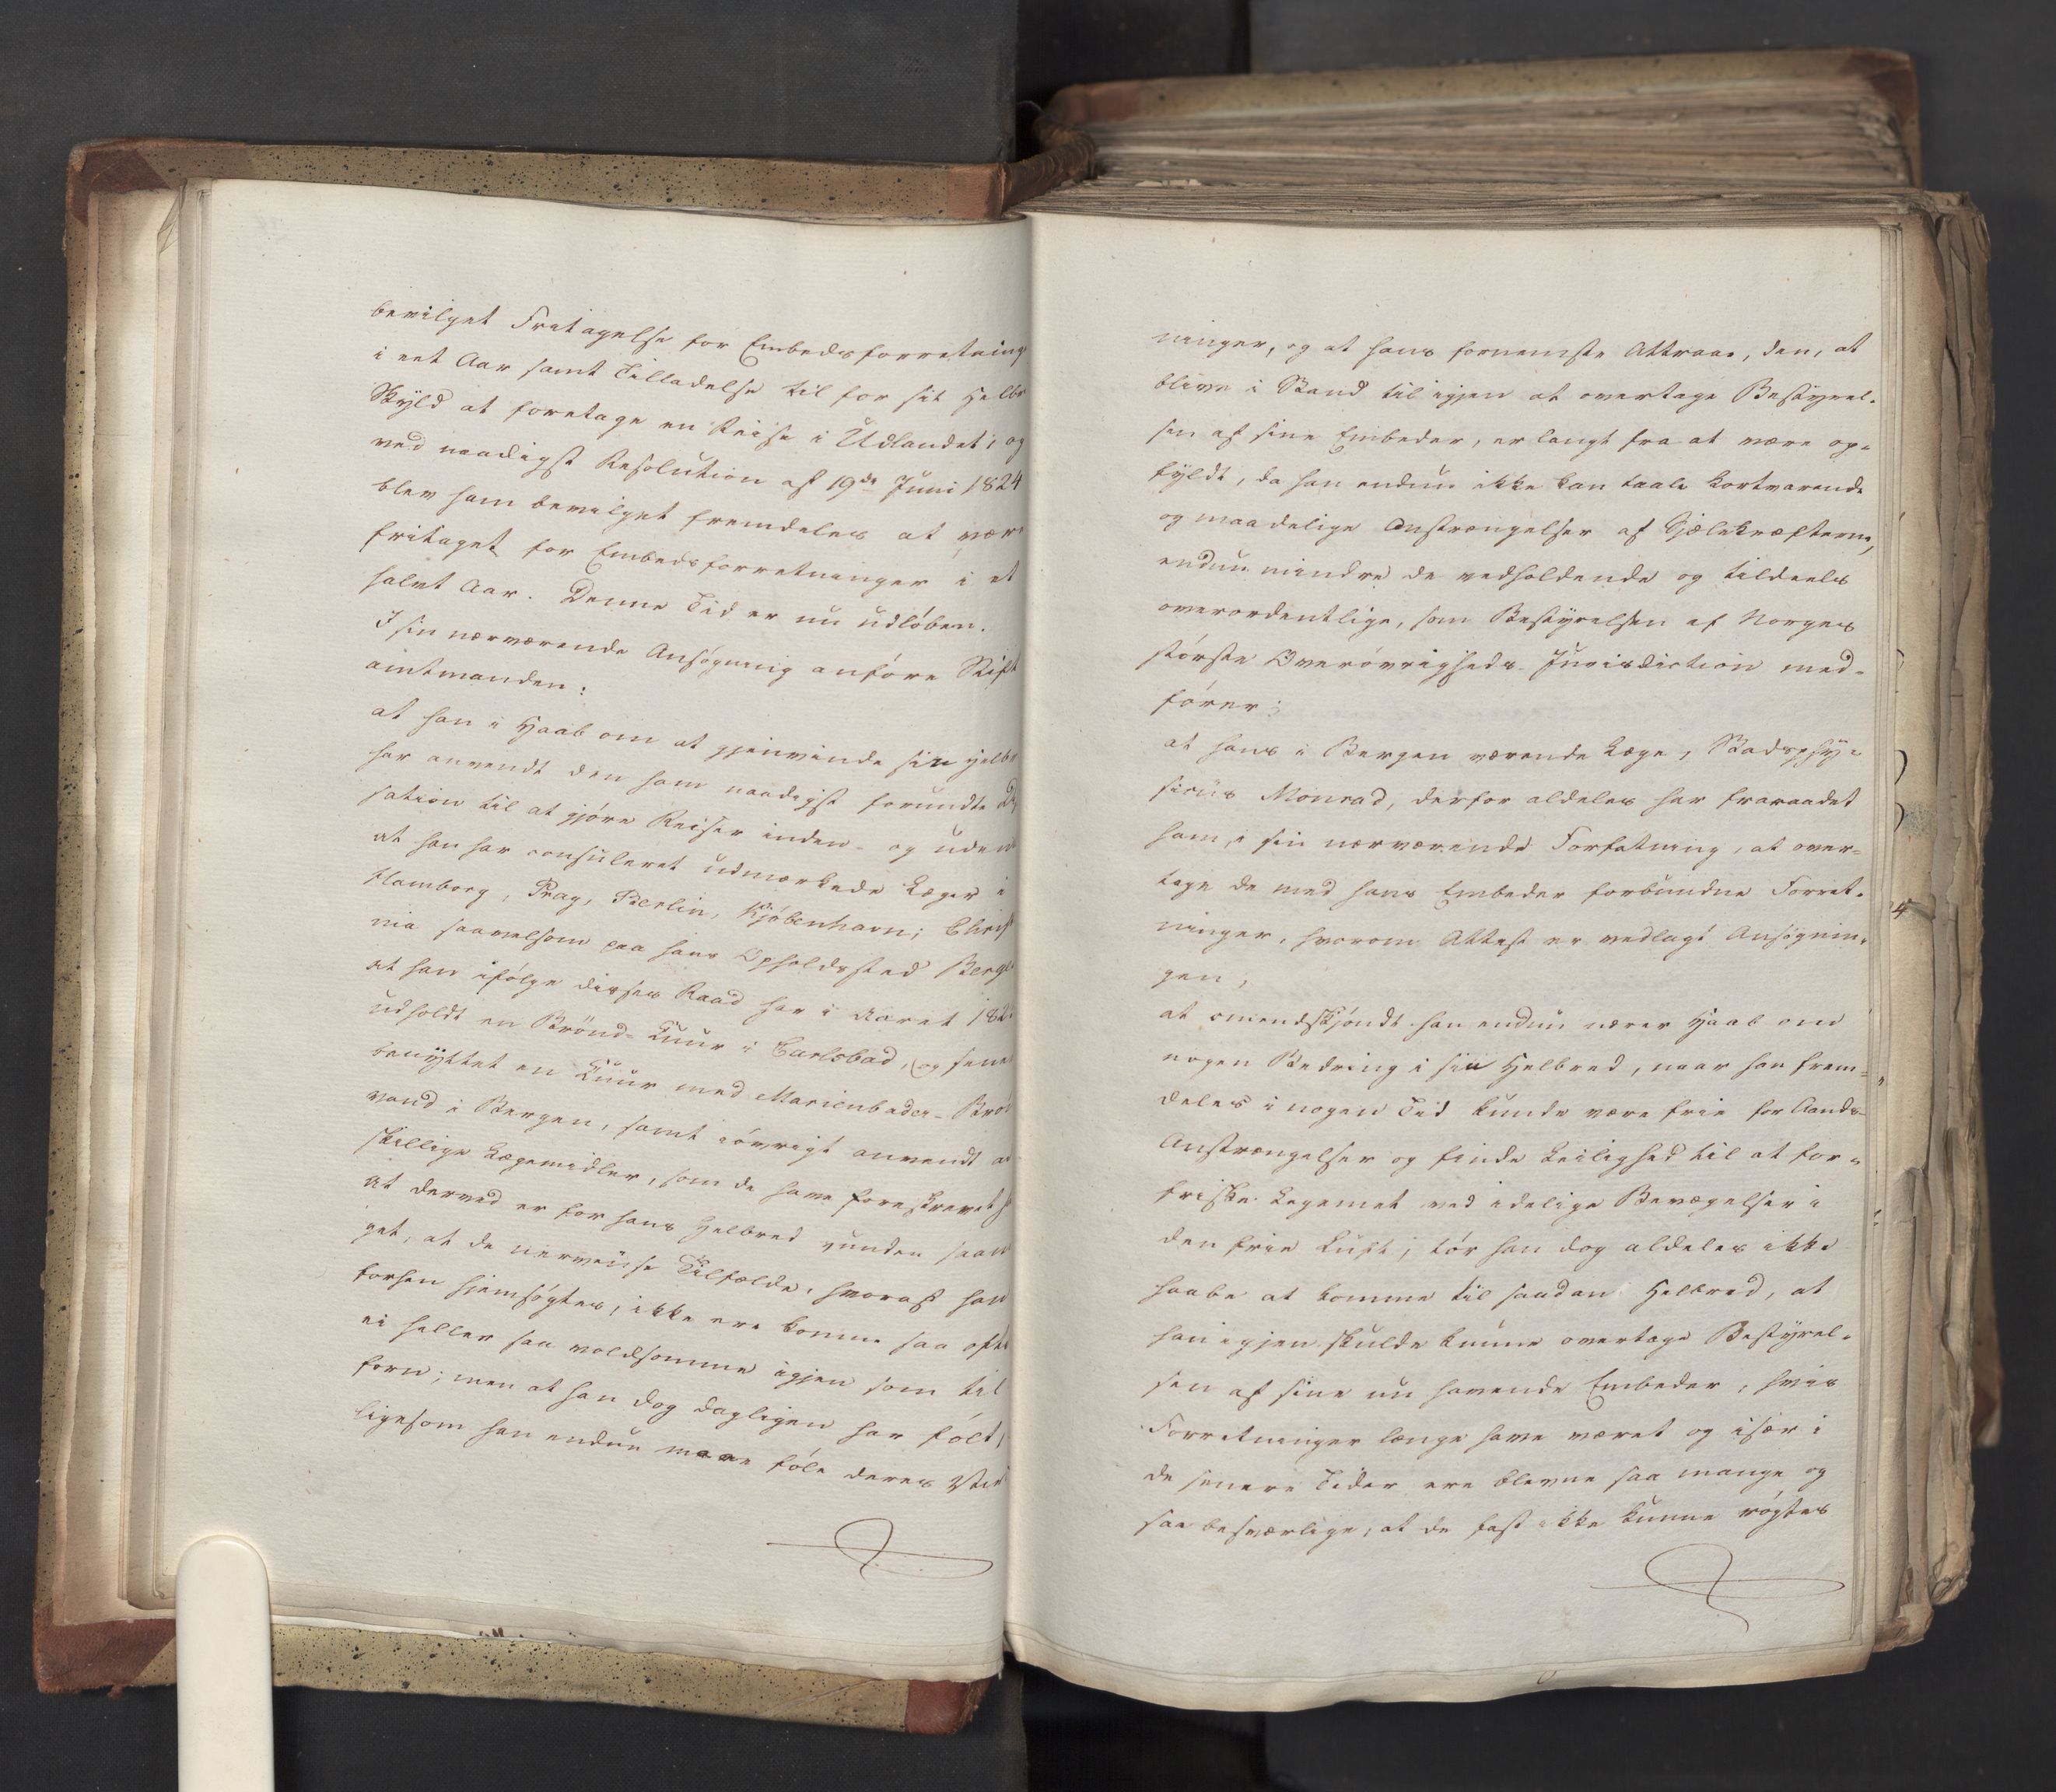 bevilget Fritagelse for Embedsforretning
i eet Aar samt Tilladelse til for sit Helbr
Skyld at foretage en Reise i Udlandet; og
ved naadigst Resolution af 19de Juni 1824
blev ham bevilget fremdeles at være
fritaget for Embedsforretninger i et
halvt Aar. Denne Tid er nu udløben.
I sin nærværende Ansøgning anføre Stift
amtmanden:
at han i Haab om at gjenvinde sin Helbr
har anvendt den ham naadigst forundte
sation til at gjøre Reiser inden- og uden
at han har consuleret udmærkede Læger i
Hamborg, Prag, Berlin, Kjøbenhavn, Christ
nia saavelsom paa hans Opholdssted Berge
at han ifølge disses Raad har i Aaret 182
udholdt en Brönd-Kuur i Carlsbad, og sene
benyttet en Kuur med Marienbader-Brön
vand i Bergen, samt iøvrigt anvendt a
skillige Lægemidler, som de have foreskrevet h
at derved er for hans Helbred vunden saa
get, at de nerveuse Tilfælde, hvoraf han
forhen hjemsøgtes, ikke ere komne saa ofte
ei heller saa voldsomme igjen som til
forn; men at han dog dagligen har følt,
ligesom han endnu maae føle deres Vir
ninger, og at hans fornemste Attraae, den, at
blive i Stand til igjen at overtage Bestyrel-
sen af sine Embeder, er langt fra at være op-
fyldt, da han endnu ikke kan taale kortvarende
og maadelige Anstrængelser af Sjælekræfterne,
endnu mindre de vedholdende og tildeels
overordentlige, som Bestyrelsen af Norges
største Overøvrigheds-Jurisdiction med-
fører;
at hans i Bergen værende Læge, Stadsphy-
sicus Monrad, derfor aldeles har fraraadet
ham, i sin nærværende Forfatning, at over-
tage de med hans Embeder forbundne Forret-
ninger, hvorom Attest er vedlagt Ansøgnin-
gen;
at omendskjøndt han endnu nærer Haab om
nogen Bedring i sin Helbred, naar han frem-
deles i nogen Tid kunde være frie for Aands-
Anstrængelser og finde Leilighed til at for-
friske Legemet ved idelige Bevægelser i
den frie Luft, tør han dog aldeles ikke
haabe at komme til saadan Helbred, at
han igjen skulde kunne overtage Bestyrel-
sen af sine nu havende Embeder, hvis
Forretninger længe have været og især i
de senere Tider ere blevne saa mange og
saa besværlige, at de fast ikke kunne røgtes